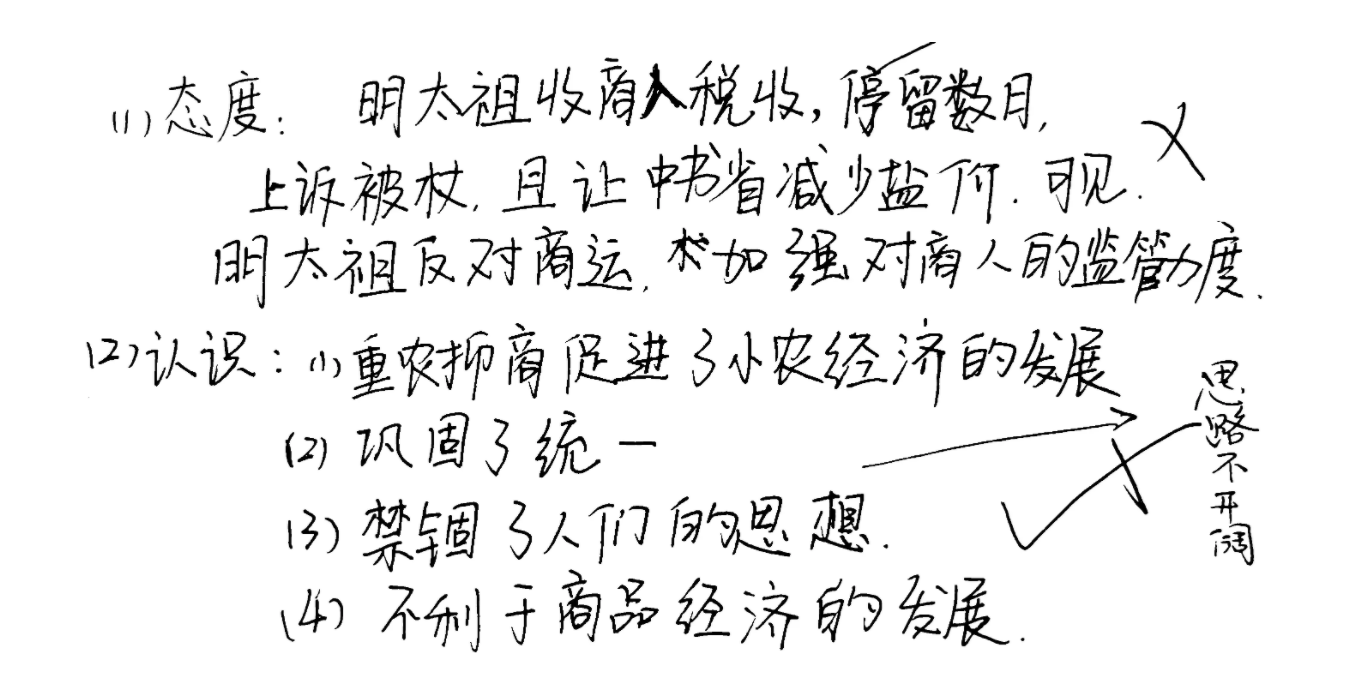 (1) 态度: 明太祖收商人税收,停留数月,
上诉被杖,且让中书省减少盐价.可见.
明太祖反对商运,加强对商人的监管力度.
(2) 认识: (1) 重农抑商促进了小农经济的发展
(2) 巩固了统一
(3) 禁锢了人们的思想.
(4) 不利于商品经济的发展.
思路不开阔